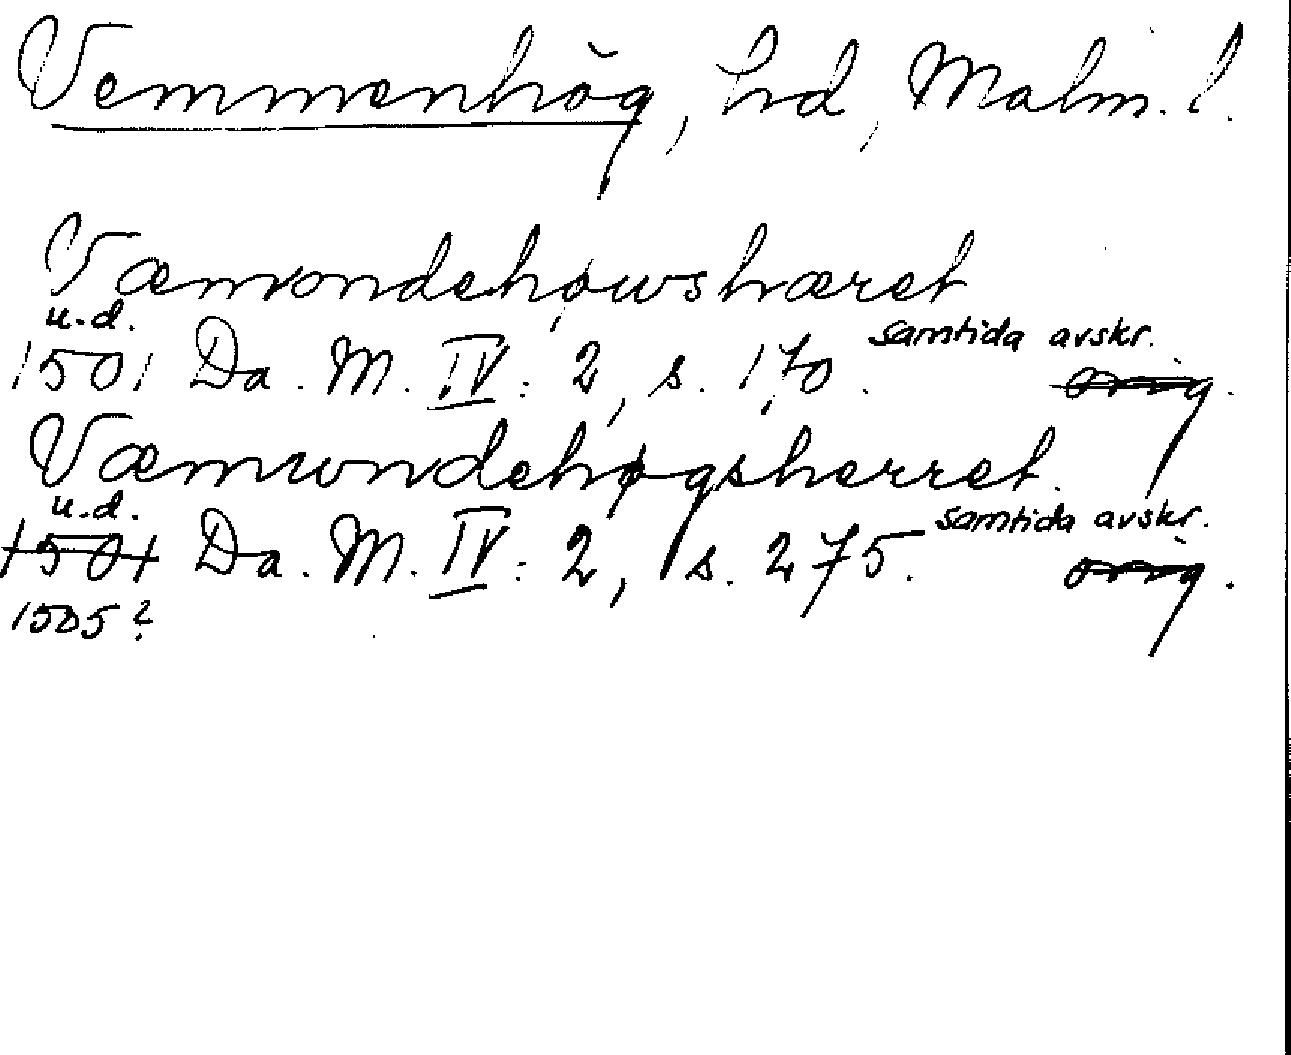 Vemmenhög, hd, Malm. l.
Væmondehøwshæret
u.d. samtida avskr.
1501 Da. M. IV: 2, s. 170. orig.
Væmwndehøgsherret.
u.d. samtida avskr.
1501 Da. M. IV: 2, s. 275. orig.
1505?